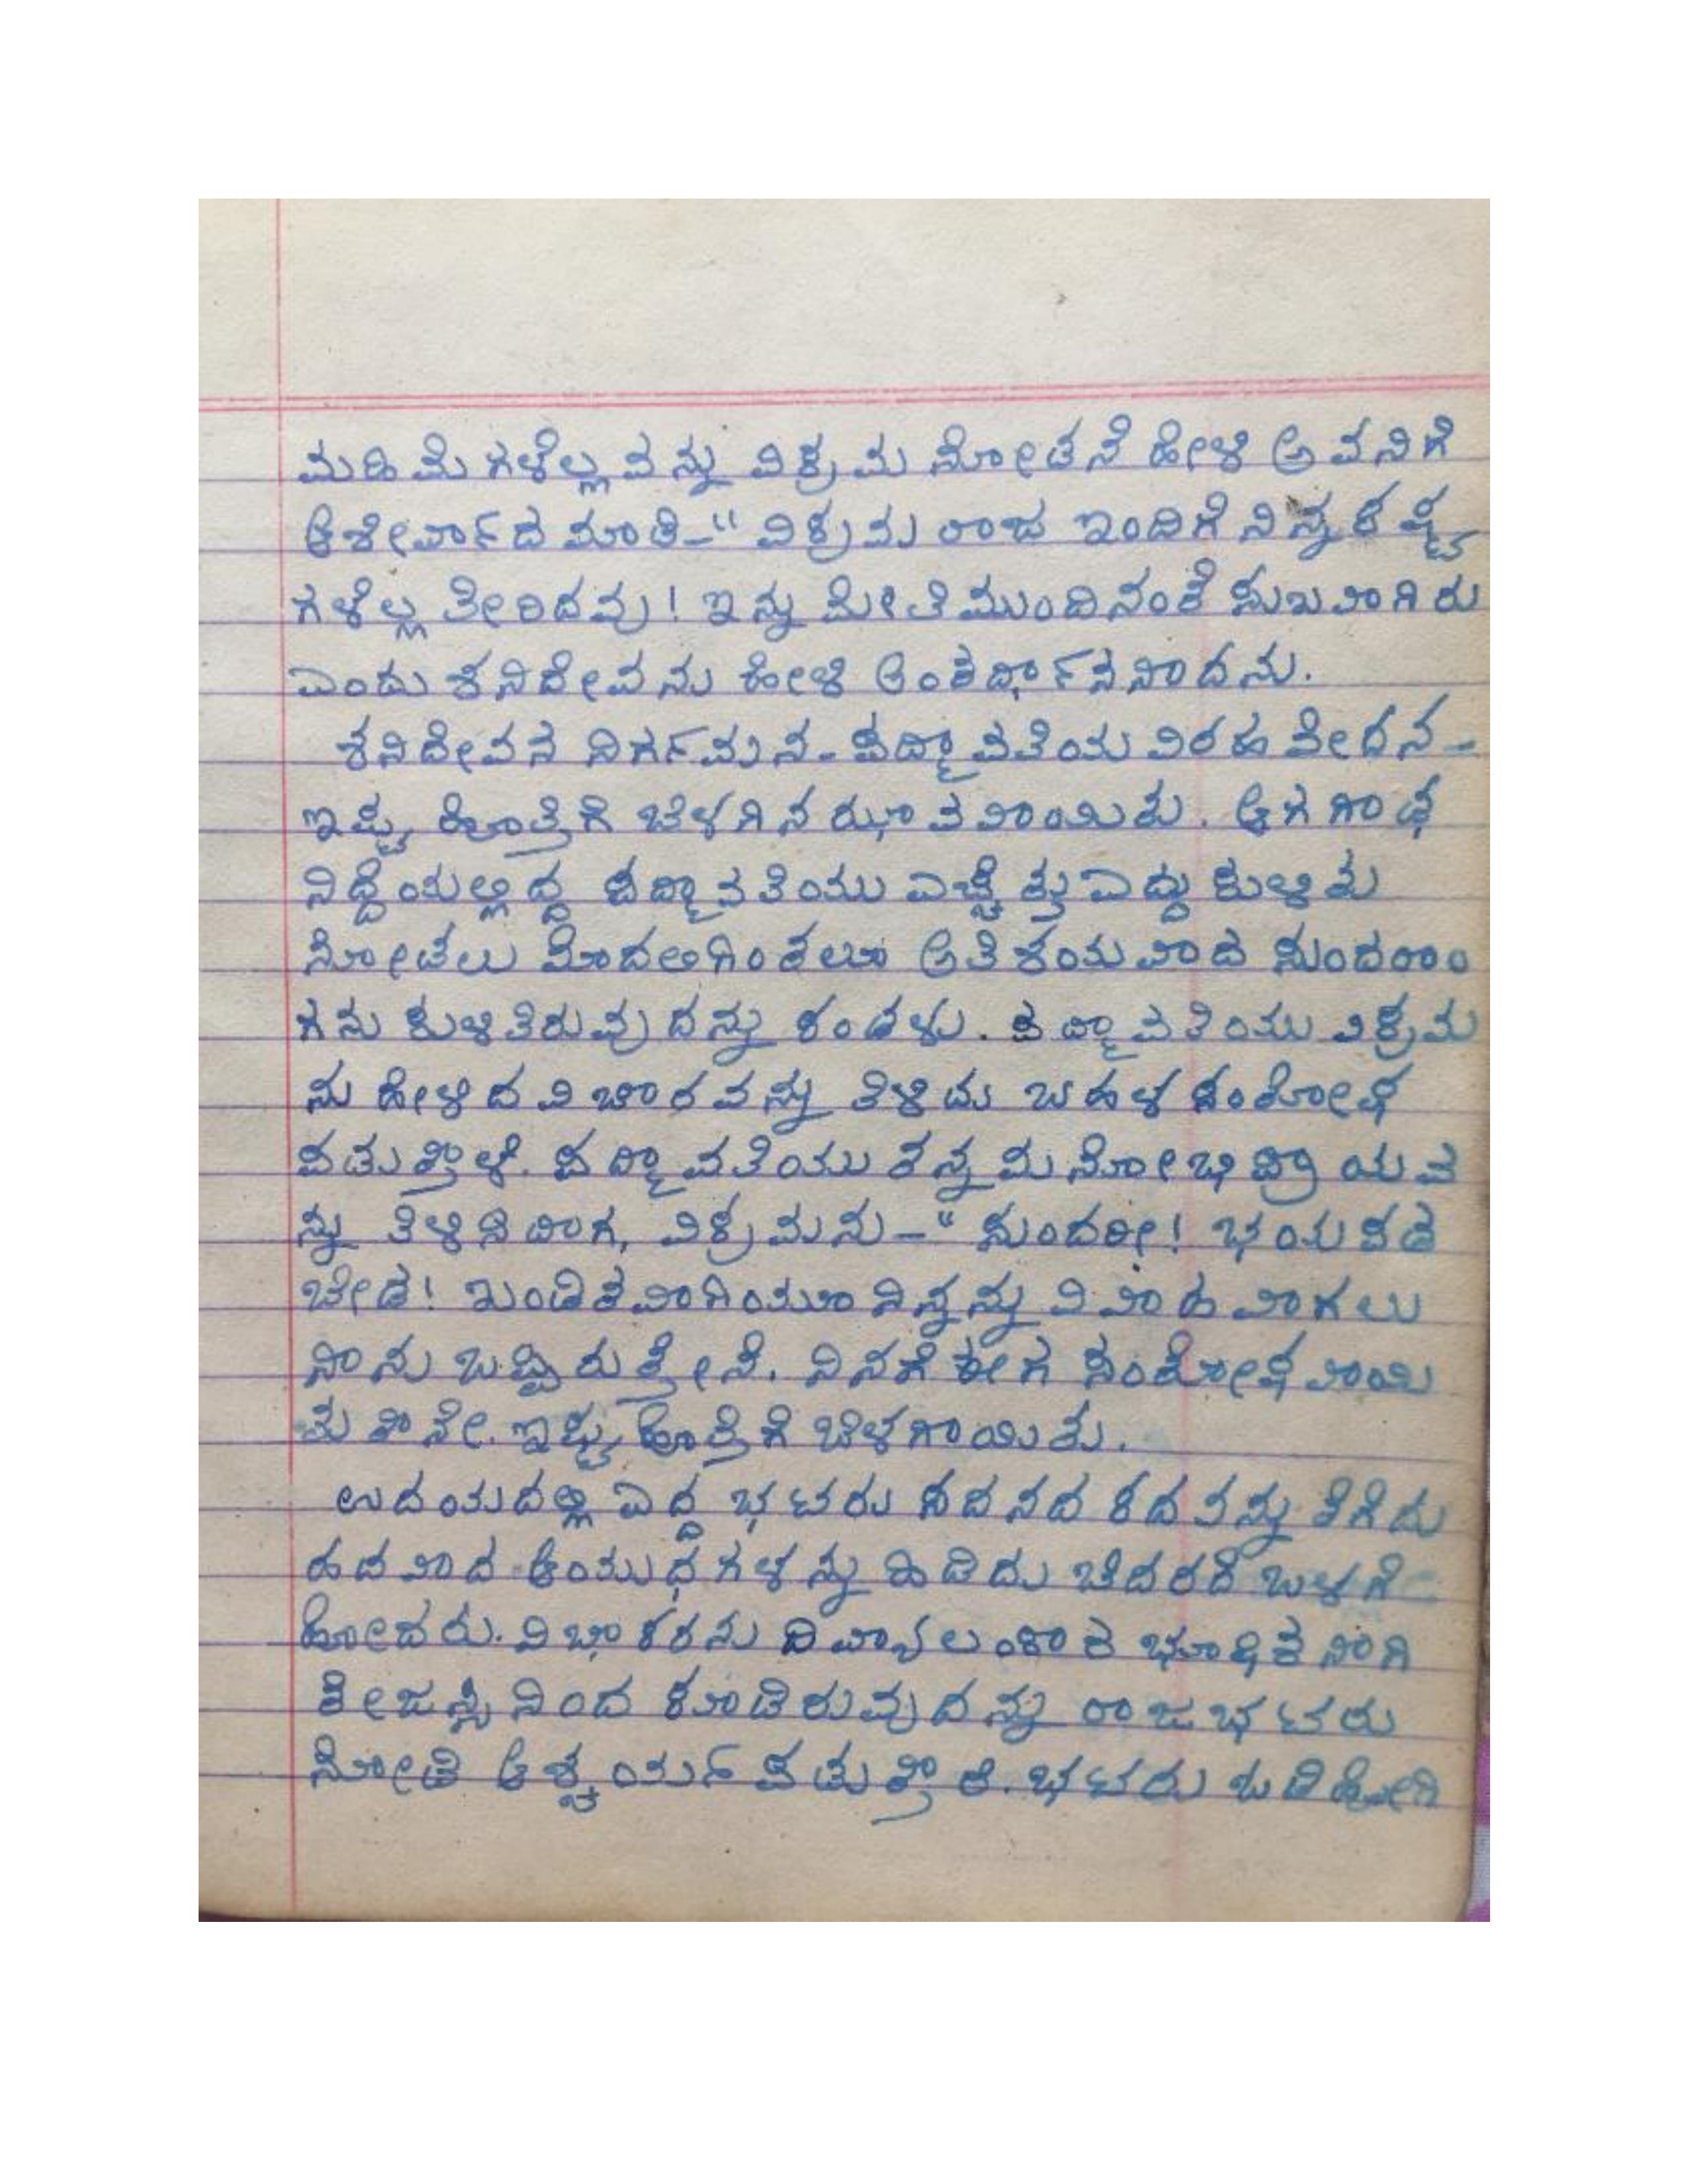 ಮಹಿಮೆಗಳೆಲ್ಲವನ್ನು ವಿಕ್ರಮನೋಡನೆ ಹೇಳಿ ಅವನಿಗೆ
ಆಶೀರ್ವಾದ ಮಾಡಿ-" ವಿಕ್ರಮ ರಾಜ ಇಂದಿಗೆ ನಿನ್ನ ಕಷ್ಟ
ಗಳೆಲ್ಲ ತೀರಿದವು! ಇನ್ನು ಮೇಲೆ ಮುಂದಿನಂತೆ ಸುಖವಾಗಿರು
ಎಂದು ಶನಿದೇವನು ಹೇಳಿ ಅಂತರ್ಧಾನನಾದನು.
ಶನಿದೇವನ ನಿರ್ಗಮನ- ಪದ್ಮಾವತಿಯ ವಿರಹ ವೇದನ-
ಇಷ್ಟು ಹೊತ್ತಿಗೆ ಬೆಳಗಿನ ಝಾವವಾಯಿತು. ಆಗ ಗಾಢ
ನಿದ್ದೆಯಲ್ಲಿದ್ದ ಪದ್ಮಾವತಿಯು ಎಚ್ಚೆತ್ತು ಎದ್ದು ಕುಳಿತು
ನೋಡಲು ಮೊದಲಗಿಂತಲೂ ಅತಿಶಯವಾದ ಸುಂದರಾಂ
ಗನು ಕುಳಿತಿರುವುದನ್ನು ಕಂಡಳು. ಪದ್ಮಾವತಿಯು ವಿಕ್ರಮ
ನು ಹೇಳಿದ ವಿಚಾರವನ್ನು ತಿಳಿದು ಬಹಳ ಸಂತೋಷ
ಪಡುತ್ತಾಳೆ. ಪದ್ಮಾವತಿಯು ತನ್ನ ಮನೋಭಿಪ್ರಾಯವ
ನ್ನು ತಿಳಿಸಿದಾಗ, ವಿಕ್ರಮನು-" ಸುಂದರೀ! ಭಯಪಡ
ಬೇಡ! ಖಂಡಿತವಾಗಿಯೂ ನಿನ್ನನ್ನು ವಿವಾಹವಾಗಲು
ನಾನು ಒಪ್ಪಿರುತ್ತೇನೆ. ನಿನಗೆ ಈಗ ಸಂತೋಷವಾಯಿ
ತು ತಾನೇ. ಇಷ್ಟು ಹೊತ್ತಿಗೆ ಬೆಳಗಾಯಿತು.
ಉದಯದಲ್ಲಿ ಎದ್ದ ಭಟರು ಸದನದ ಕದವನ್ನು ತೆಗೆದು
ಹದವಾದ ಆಯುಧಗಳನ್ನು ಹಿಡಿದು ಬೆದರದೆ ಒಳಗೆ
ಹೋದರು. ವಿಭಾಕರನು ದಿವ್ಯಾಲಂಕಾರ ಭೂಷಿತನಾಗಿ
ತೇಜಸ್ಸಿನಿಂದ ಕೂಡಿರುವುದನ್ನು ರಾಜಭಟರು
ನೋಡಿ ಆಶ್ಚರ್ಯಪಡುತ್ತಾರೆ. ಭಟರು ಓಡಿಹೋಗಿ